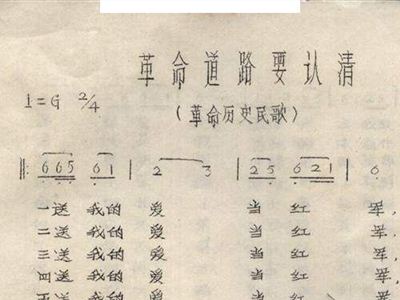 革命道路要认清
1=G 2/4
(革命历史民歌)
665 61 | 2 3 | 25 621 | 6
一送 我的 爱 当 红 军,
二送 我的 爱 当 红 军,
三送 我的 爱 当 红 军,
四送 我的 爱 当 红 军